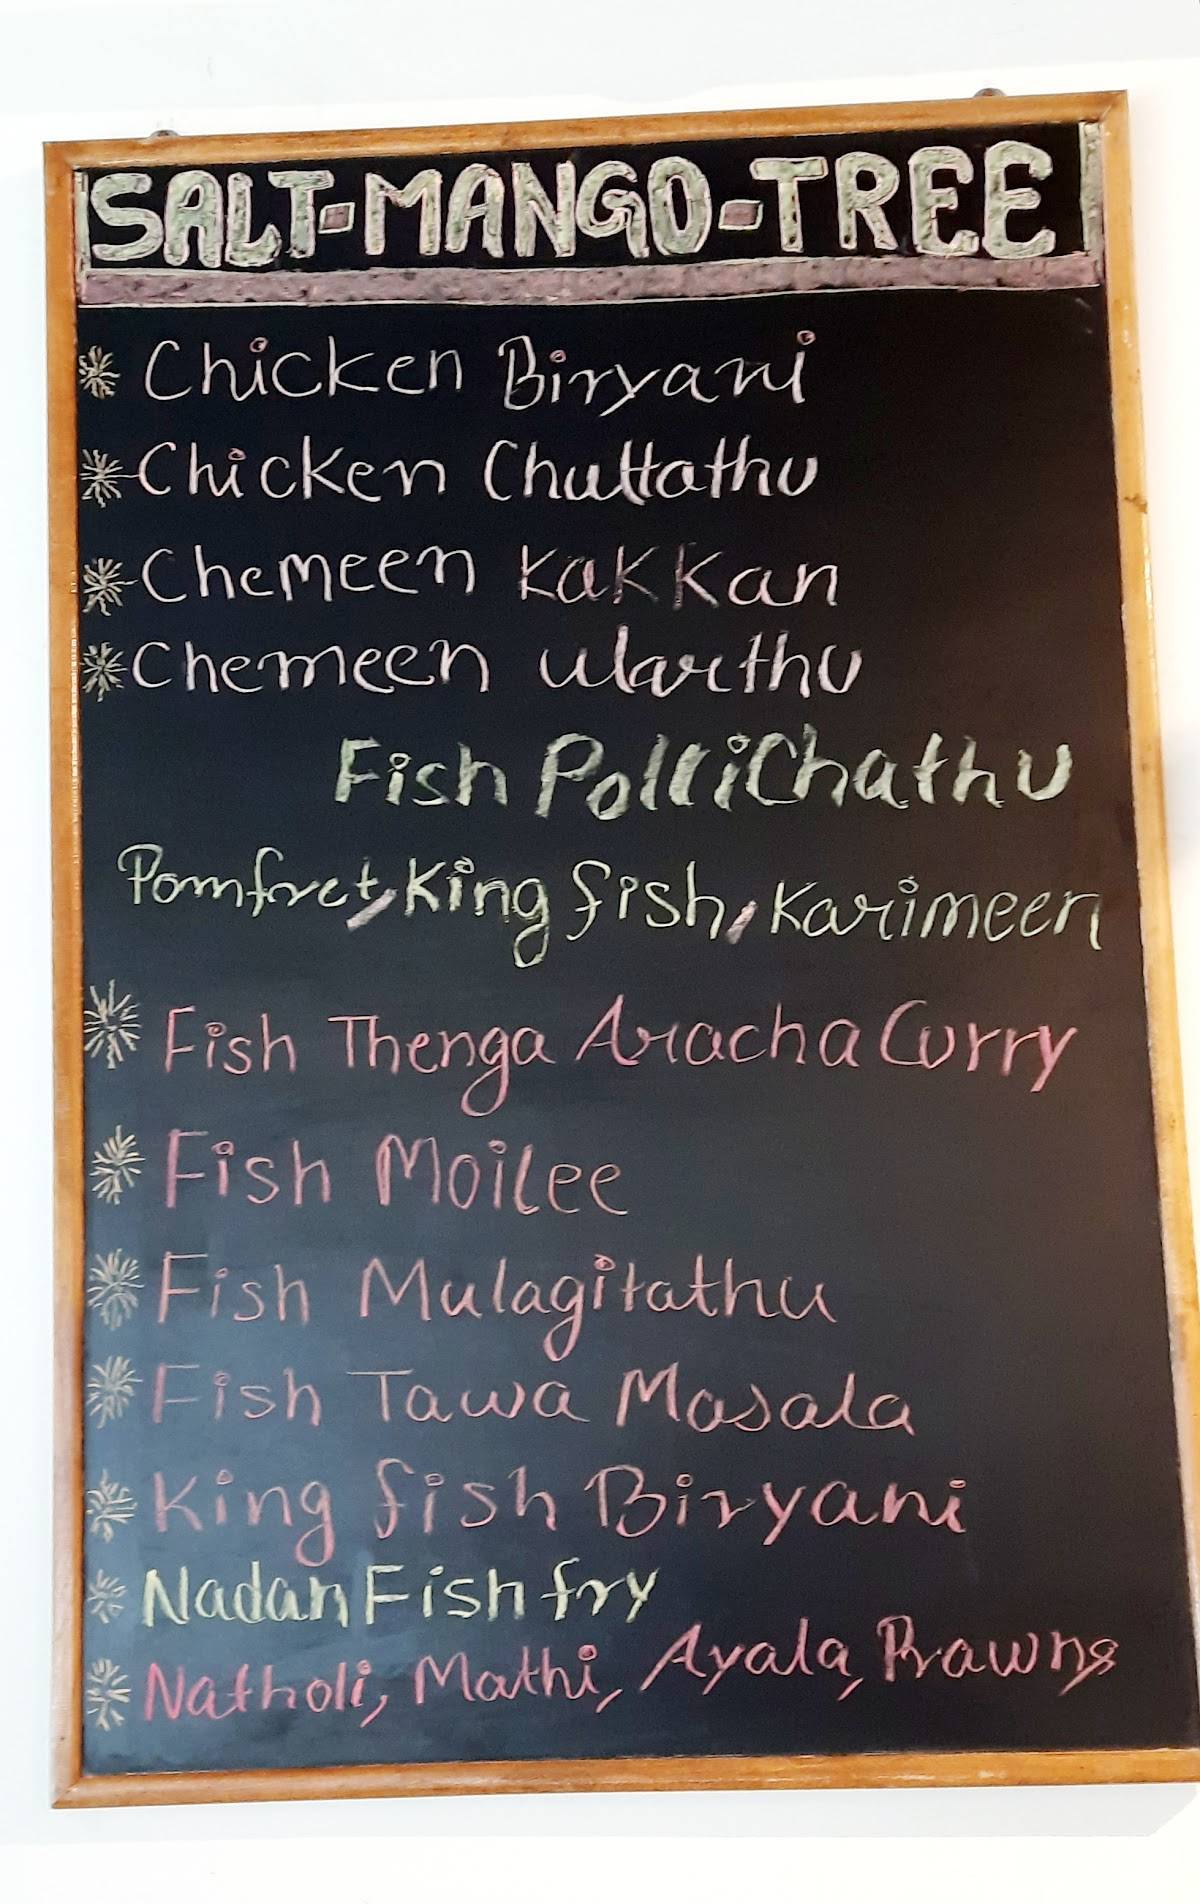 SALT-MANGO-TREE
Chicken Biryani
Chicken Chuttathu
Chemeen Kakkan
Chemeen ularthu
Fish Pollichathu
Pomfret, King fish, Karimeen
Fish Thenga Aracha Curry
Fish Moilee
Fish Mulagitathu
Fish Tawa Masala
King fish Biryani
Nadan Fish fry
Natholi, Mathi, Ayala, Prawns